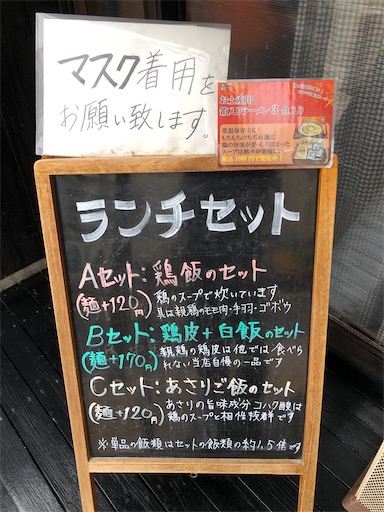 マスク着用を
お願い致します。
お土産用
箱入りラーメン3食入り
常温保存OK!
もちもちのちぢれ麺に
鶏の旨味がぎゅり詰まった
スープは格々が美味しい
税込1080円で発売中!
ランチセット
Aセット:鶏飯のセット
(麺+120円)
鶏のスープで炊いています
具は親鶏のモモ肉・手羽・ゴボウ
Bセット:鶏皮+白飯のセット
(麺+170円)
親鶏の鶏皮は他では食べら
れない当店自慢の一品です
Cセット:あさりご飯のセット
(麺+120円)
あさりの旨味成分コハク酸は
鶏のスープと相性抜群です
※単品の飯類はセットの飯類の約1.5倍です